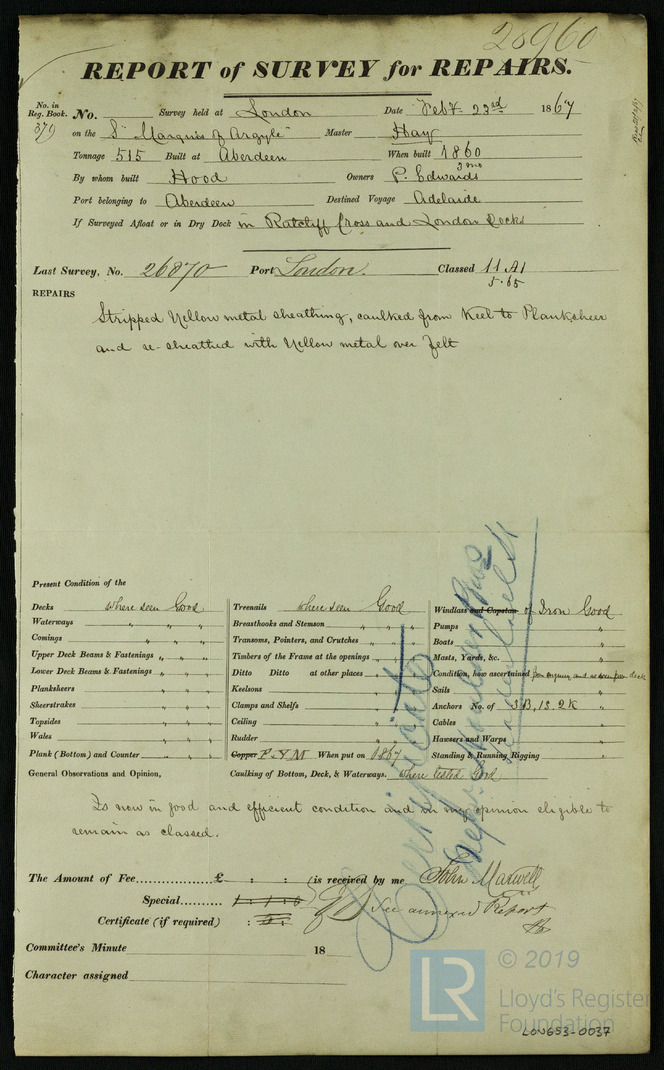 26960
REPORT of SURVEY for REPAIRS.
No. in Reg. Book. 379 No. Survey held at London Date Feby. 23rd 1867
on the S "Marquis of Argyle" Master Hay
Tonnage 515 Built at Aberdeen When built 1860 3 mo
By whom built Hood Owners P. Edwards
Port belonging to Aberdeen Destined Voyage Adelaide
If Surveyed Afloat or in Dry Dock in Ratcliff Cross and London Docks
Last Survey, No. 26870 Port London. Classed 11 A1 5.65
REPAIRS
Stripped Yellow metal sheathing, caulked from Keel to Planksheer
and re-sheathed with Yellow metal over felt
Present Condition of the
Decks where seen Good
Waterways " " "
Comings " " "
Upper Deck Beams & Fastenings " " "
Lower Deck Beams & Fastenings " " "
Planksheers " " "
Sheerstrakes " " "
Topsides " " "
Wales " " "
Plank (Bottom) and Counter " " "
Treenails where seen Good
Breasthooks and Stemson " " "
Transoms, Pointers, and Crutches " " "
Timbers of the Frame at the openings " " "
Ditto Ditto at other places " " "
Keelsons " " "
Clamps and Shelfs " " "
Ceiling " " "
Rudder " " "
Copper F. & Y M When put on 1867
Windlass and Capstan of Iron Good
Pumps "
Boats "
Masts, Yards, &c. "
Condition, how ascertained from enquiry and as seen from deck
Sails "
Anchors No. of 3B, 1S, 2K "
Cables "
Hawsers and Warps "
Standing & Running Rigging "
General Observations and Opinion, Caulking of Bottom, Deck, & Waterways. where tested Good
Is now in good and efficient condition and in my opinion eligible to
remain as classed.
The Amount of Fee £ : : is received by me John Maxwell
Special 1 : 1 : 0
See annexed Report
Certificate (if required) : 5 :
Committee's Minute 18
Character assigned
LR
© 2019
Lloyd's Register
Foundation
LON653-0037